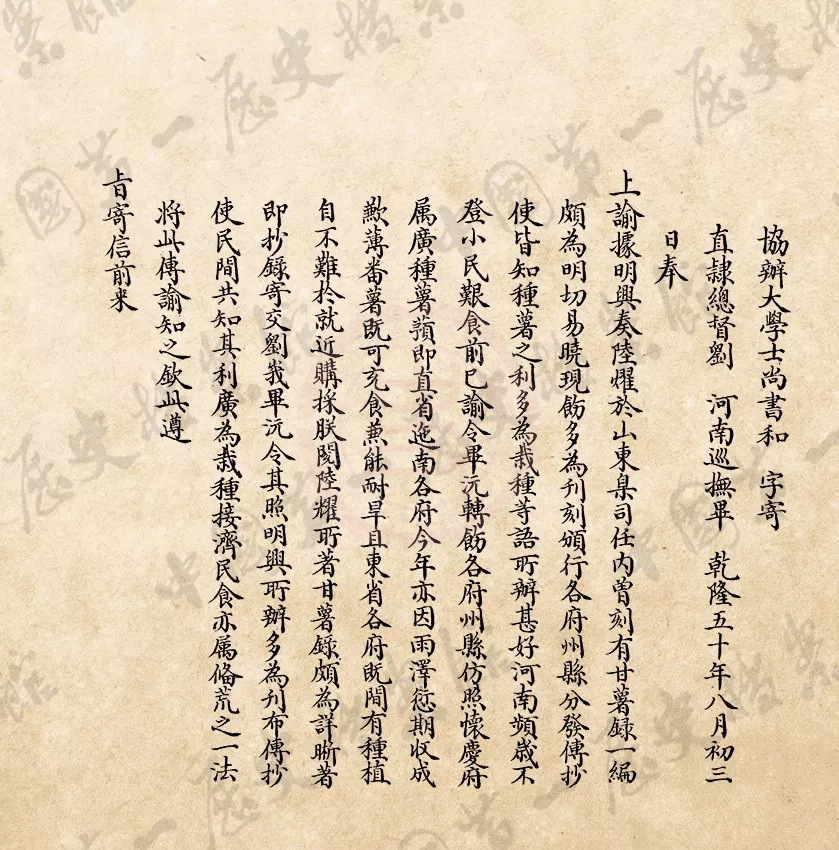 協辦大學士尚書和　字寄
直隸總督劉　河南巡撫畢　乾隆五十年八月初三
日奉
上諭據明興奏陸燿於山東臬司任內曾刻有甘薯録一編
頗為明切易曉現飭多為刊刻頒行各府州縣分發傳抄
使皆知種薯之利多為栽種等語所辦甚好河南頻歲不
登小民艱食前已諭令畢沅轉飭各府州縣仿照懷慶府
属廣種薯蕷即直省迤南各府今年亦因雨澤愆期收成
歉薄番薯既可充食兼能耐旱且東省各府既間有種植
自不難於就近購採朕閱陸燿所著甘薯錄頗為詳晰著
即抄錄寄交劉峩畢沅令其照明興所辦多為刊布傳抄
使民間共知其利廣為栽種接濟民食亦属俻荒之一法
將此傳諭知之欽此遵
旨寄信前来
中國第一歷史檔案館